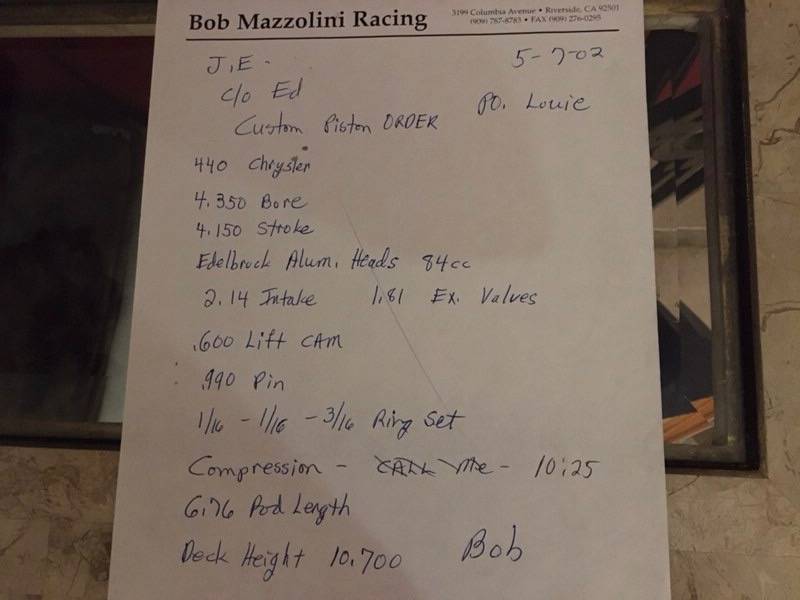 Bob Mazzolini Racing
3199 Columbia Avenue • Riverside, CA 92501
(909) 787-8783 • FAX (909) 276-0295
J.E. -
5-7-02
c/o Ed
P.O. Louie
Custom Piston ORDER
440 Chrysler
4.350 Bore
4.150 Stroke
Edelbrock Alum. Heads 84cc
2.14 Intake 1.81 Ex. Valves
.600 Lift CAM
.990 Pin
1/16 - 1/16 - 3/16 Ring Set
Compression - CALL Me - 10:25
6.76 Rod Length
Deck Height 10.700
Bob